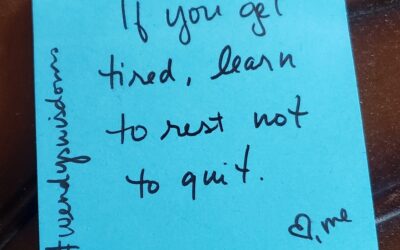 If you get
tired, learn
to rest not
to quit.
♡, me
#wendyswisdoms